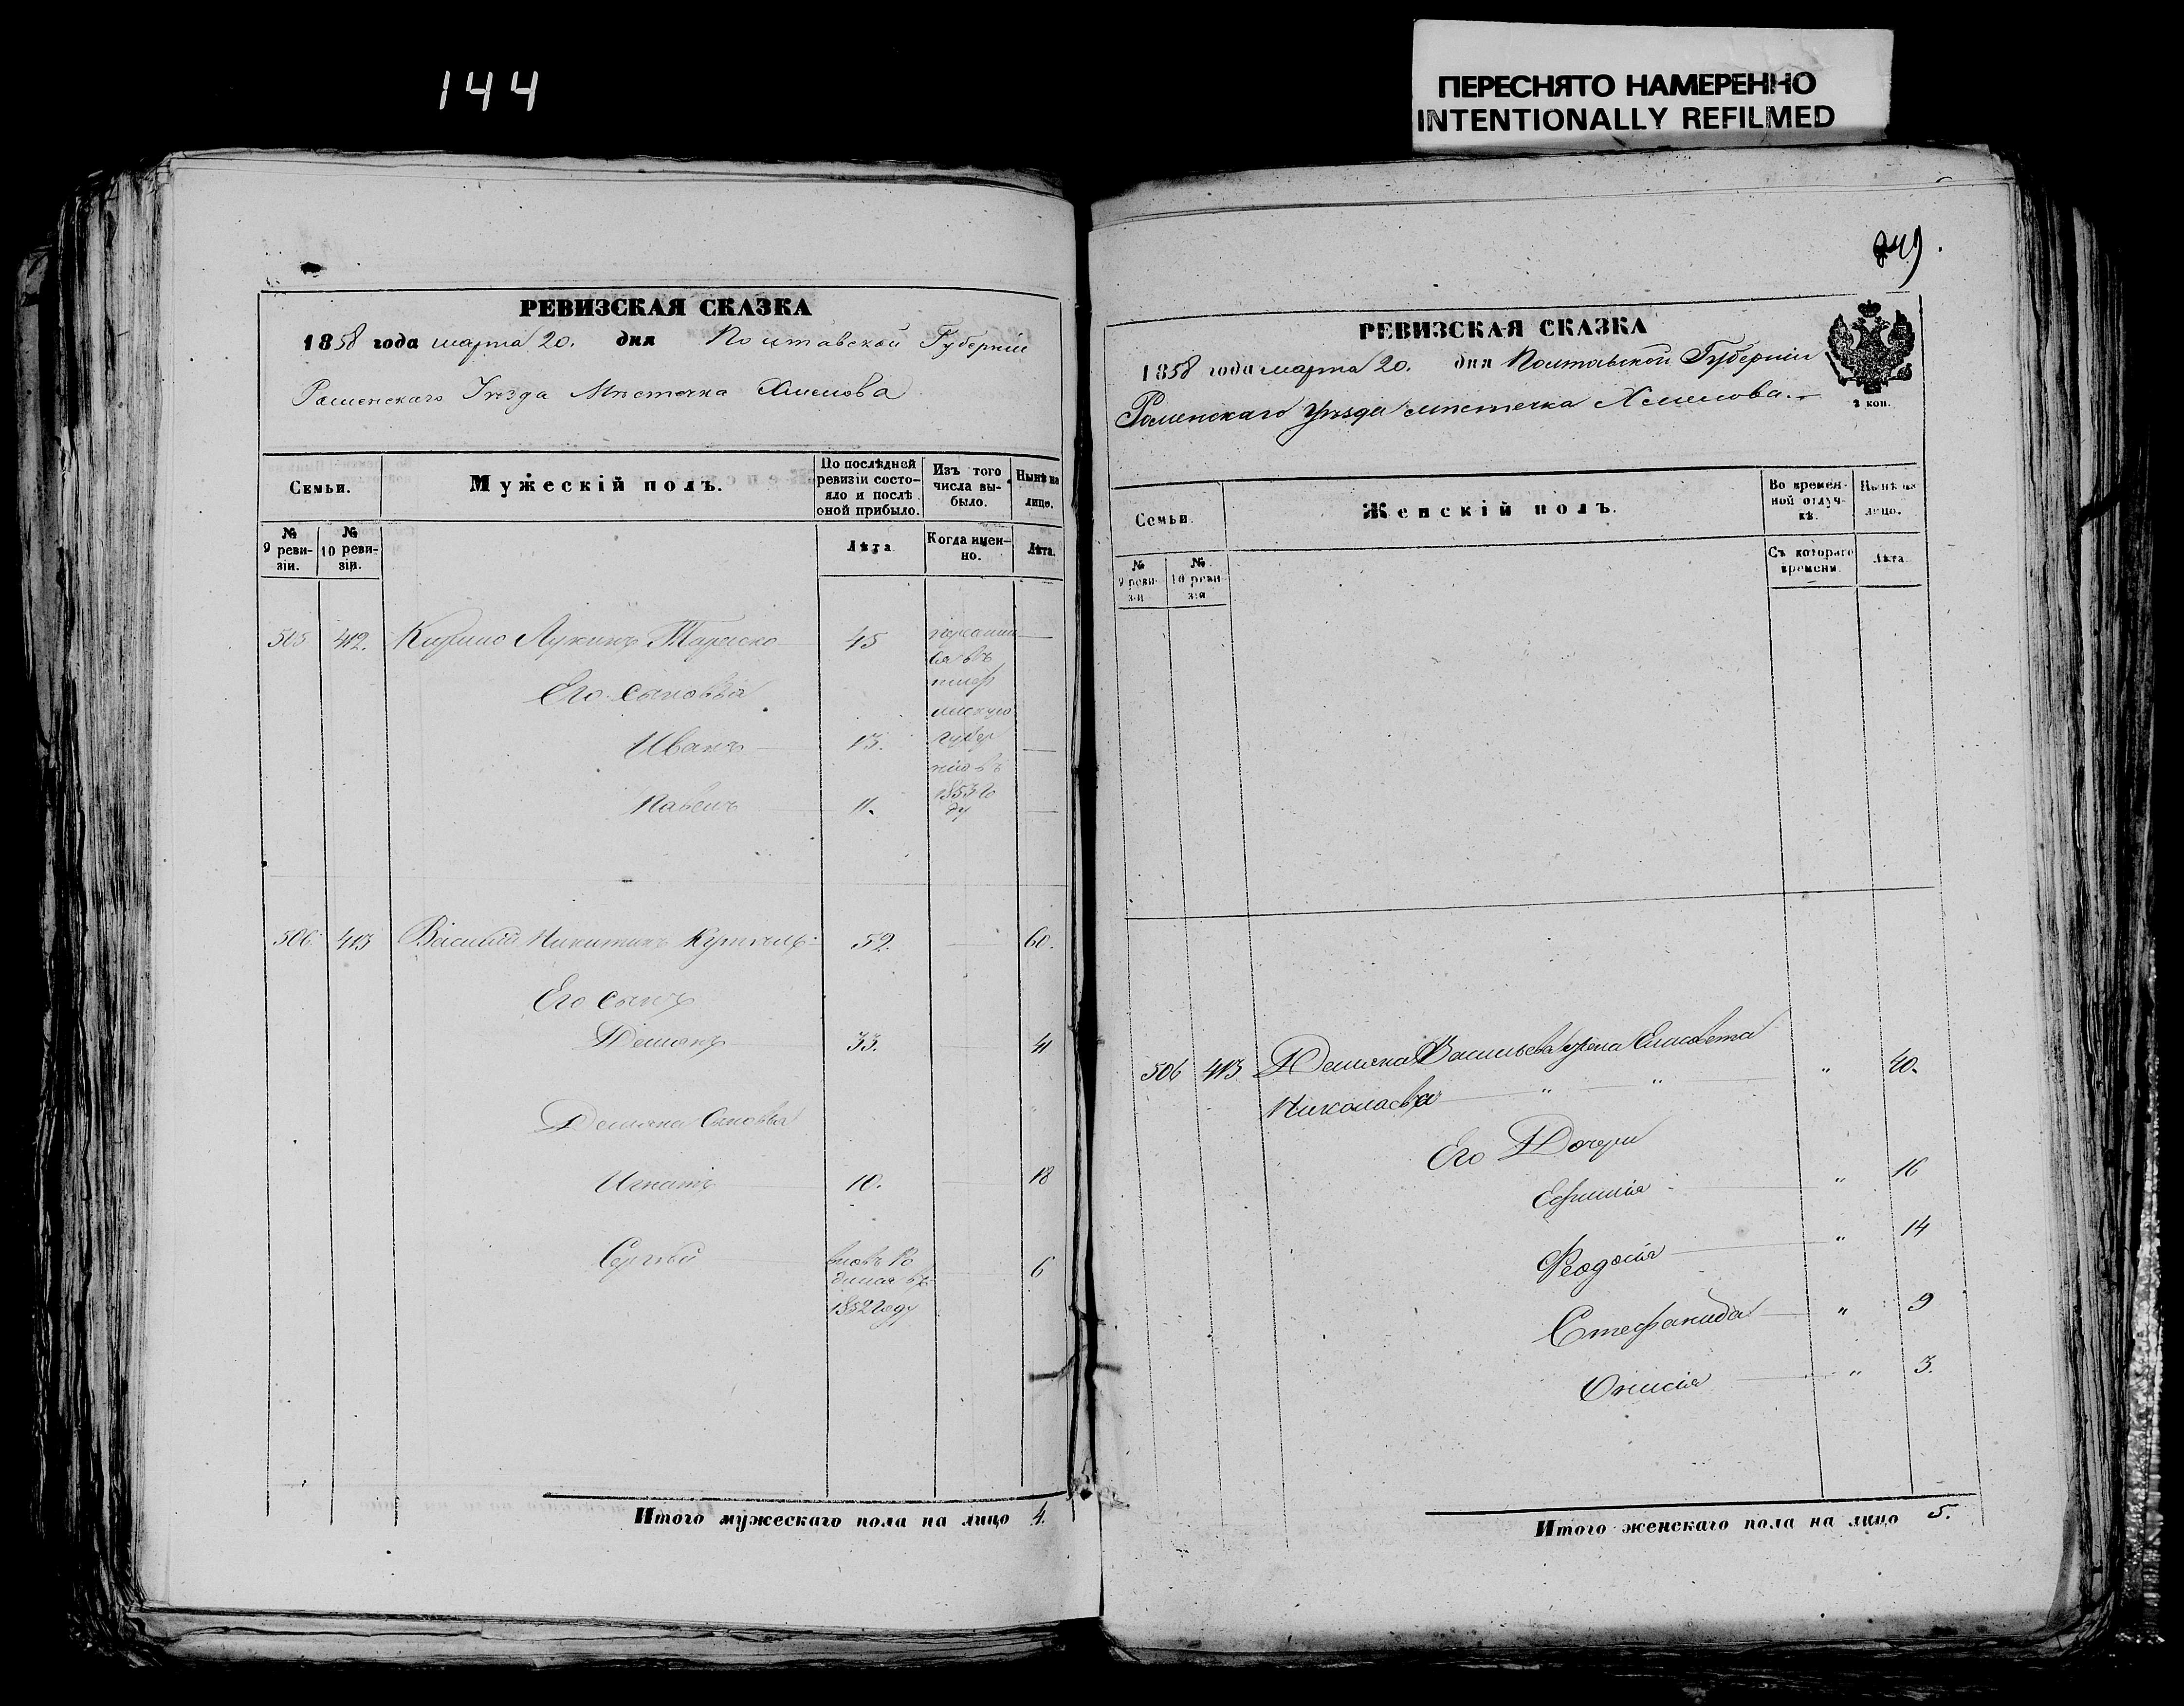 144
ПЕРЕСНЯТО НАМЕРЕННО
INTENTIONALLY REFILMED
РЕВИЗСКАЯ СКАЗКА
1858 года марта 20. дня Полтавской Губерніи
Роменскаго Уѣзда Мѣстечка Хмелова
Семьи.
Мужескій полъ.
По послѣдней ревизіи состояло и послѣ оной прибыло.
Изъ того числа выбыло.
Нынѣ на лицо.
№ 9 ревизіи.
№ 10 ревизіи.
Лѣта
Когда именно.
Лѣта.
505 412. Лукинъ 45
Его сыновья
Иванъ 13.
Павелъ 11.
губер
нію въ
1853 го
ду
506 413 Василий Никитинъ 52. 60.
Его сынъ
Демянъ 33. 41
Демяна Сыновья
Игнатъ 10. 18
Сергѣй 6
вновь ро
дился въ
1852 году
Итого мужескаго пола на лицо 4.
249.
РЕВИЗСКАЯ СКАЗКА
1858 года марта 20. дня Полтавской Губерніи
Роменскаго Уѣзда мѣстечка Хмелова.
2 коп.
Семьи.
Женскій полъ.
Во временной отлучкѣ.
Нынѣ на лицо.
№ 9 ревизіи
№ 10 ревизіи
Съ котораго времени.
Лѣта.
506 413 Демяна Васильева жена Елисавета
Николаева " " " 40.
Его Дочери
Ефимія " 16
Феодосія " 14
Стефанида " 9
Онисія " 3.
Итого женскаго пола на лицо 5.